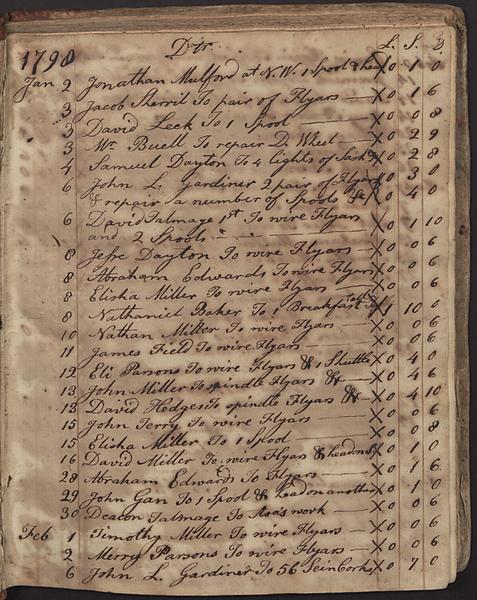 1798 Dr L. S. D
Jan 2 Jonathan Mulford at N.W. 1 Spool & head X 0 1 0
3 Jacob Sherril To pair of Flyars X 0 1 6
3 David Leek To 1 Spool X 0 0 8
3 Mr Buell To repair D. Wheel X 0 2 9
4 Samuel Dayton To 4 lights of Sash X 0 2 8
6 John L. Gardiner 2 pair of Flyars X 0 3 0
& repair a number of Spools &c X 0 4 0
6 David Talmage 1st To wire Flyars
and 2 Spools X 0 1 10
8 Jesse Dayton To wire Flyars X 0 0 6
8 Abraham Edwards To wire Flyars X 0 0 6
8 Elisha Miller To wire Flyars X 0 0 6
8 Nathaniel Baker To 1 Breakfast X 1 10 0
10 Nathan Miller To wire Flyars X 0 0 6
11 James Field To wire Flyars X 0 0 6
12 Eli Parsons To wire Flyars & 1 Shuttle X 0 4 0
13 John Miller To spindle Flyars &c X 0 4 6
13 David Hedges To spindle Flyars &c X 0 4 10
15 John Terry To wire Flyars X 0 0 6
15 Elisha Miller To 1 Spool X 0 0 8
16 David Miller To wire Flyars & head on S X 0 1 0
28 Abraham Edwards To Flyars X 0 1 6
29 John Gan To 1 Spool & head on another X 0 1 0
30 Deacon Talmage To Asa's work X 0 0 6
Feb 1 Timothy Miller To wire Flyars X 0 0 6
2 Merry Parsons To wire Flyars X 0 0 6
6 John L. Gardiner To 56 Sein Cork X 0 7 0